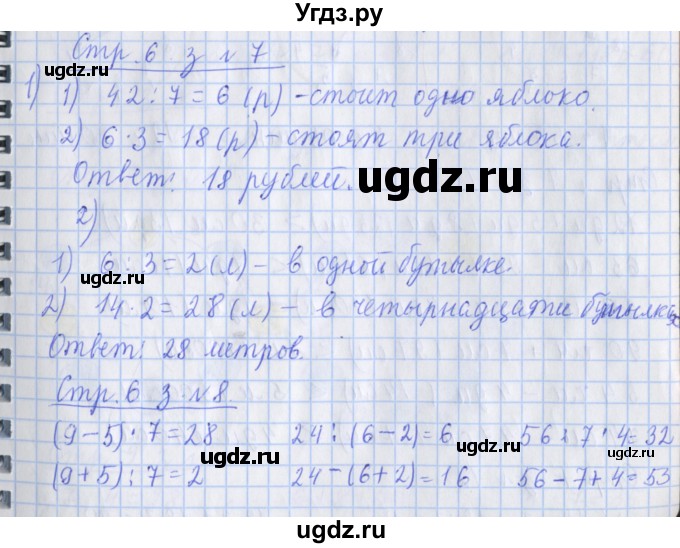 Угдз.ру
Стр. 6 з №7
ugdz.ru
ugdz.ru
1) 1) 42:7=6(р) - стоит одно яблоко.
2) 6·3=18(р) - стоят три яблока.
ugdz.ru
Ответ: 18 рублей.
ugdz.ru
2)
1) 6:3=2(л) - в одной бутылке.
ugdz.ru
2) 14·2=28(л) - в четырнадцати бутылках
Ответ: 28 метров.
ugdz.ru
Стр. 6 з №8.
(9-5)·7=28 24:(6-2)=6 56:7·4=32
ugdz.ru
ugdz.ru
(9+5):7=2 24-(6+2)=16 56-7+4=53
ugdz.ru
ugdz.ru